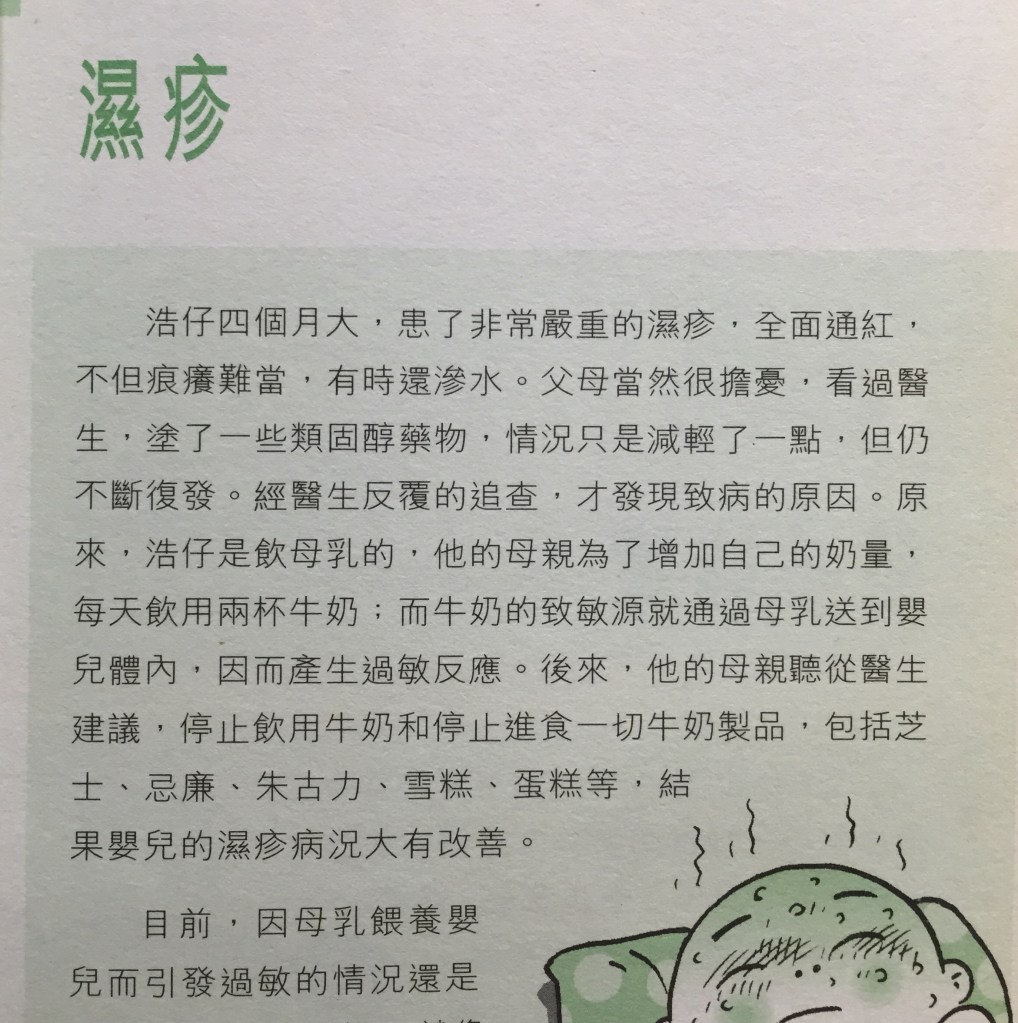 濕疹
浩仔四個月大，患了非常嚴重的濕疹，全面通紅，
不但痕癢難當，有時還滲水。父母當然很擔憂，看過醫
生，塗了一些類固醇藥物，情況只是減輕了一點，但仍
不斷復發。經醫生反覆的追查，才發現致病的原因。原
來，浩仔是飲母乳的，他的母親為了增加自己的奶量，
每天飲用兩杯牛奶；而牛奶的致敏源就通過母乳送到嬰
兒體內，因而產生過敏反應。後來，他的母親聽從醫生
建議，停止飲用牛奶和停止進食一切牛奶製品，包括芝
士、忌廉、朱古力、雪糕、蛋糕等，結
果嬰兒的濕疹病況大有改善。
目前，因母乳餵養嬰
兒而引發過敏的情況還是